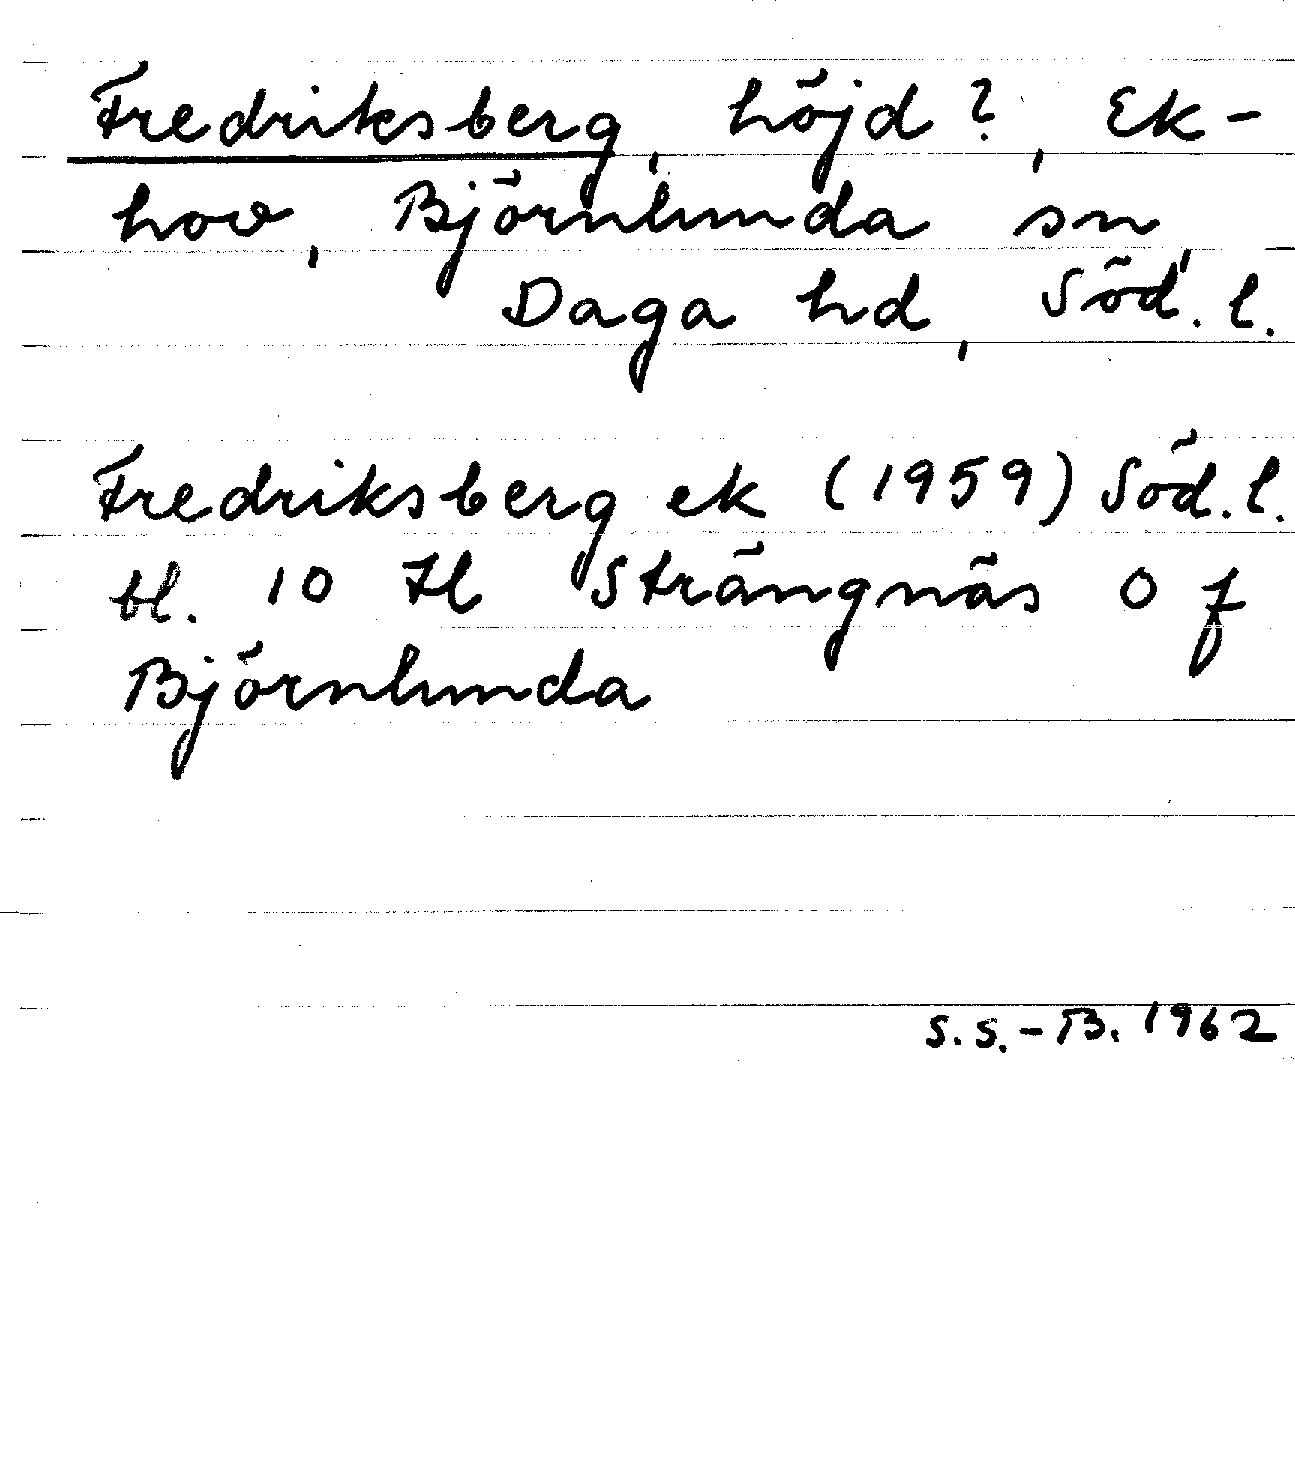 Fredriksberg, höjd?, Ek-
hov, Björnlunda sn,
Daga hd, Söd. l.
Fredriksberg ek (1959) Söd. l.
bl. 10 Hl Strängnäs 0 f
Björnlunda
S.S.-B. 1962